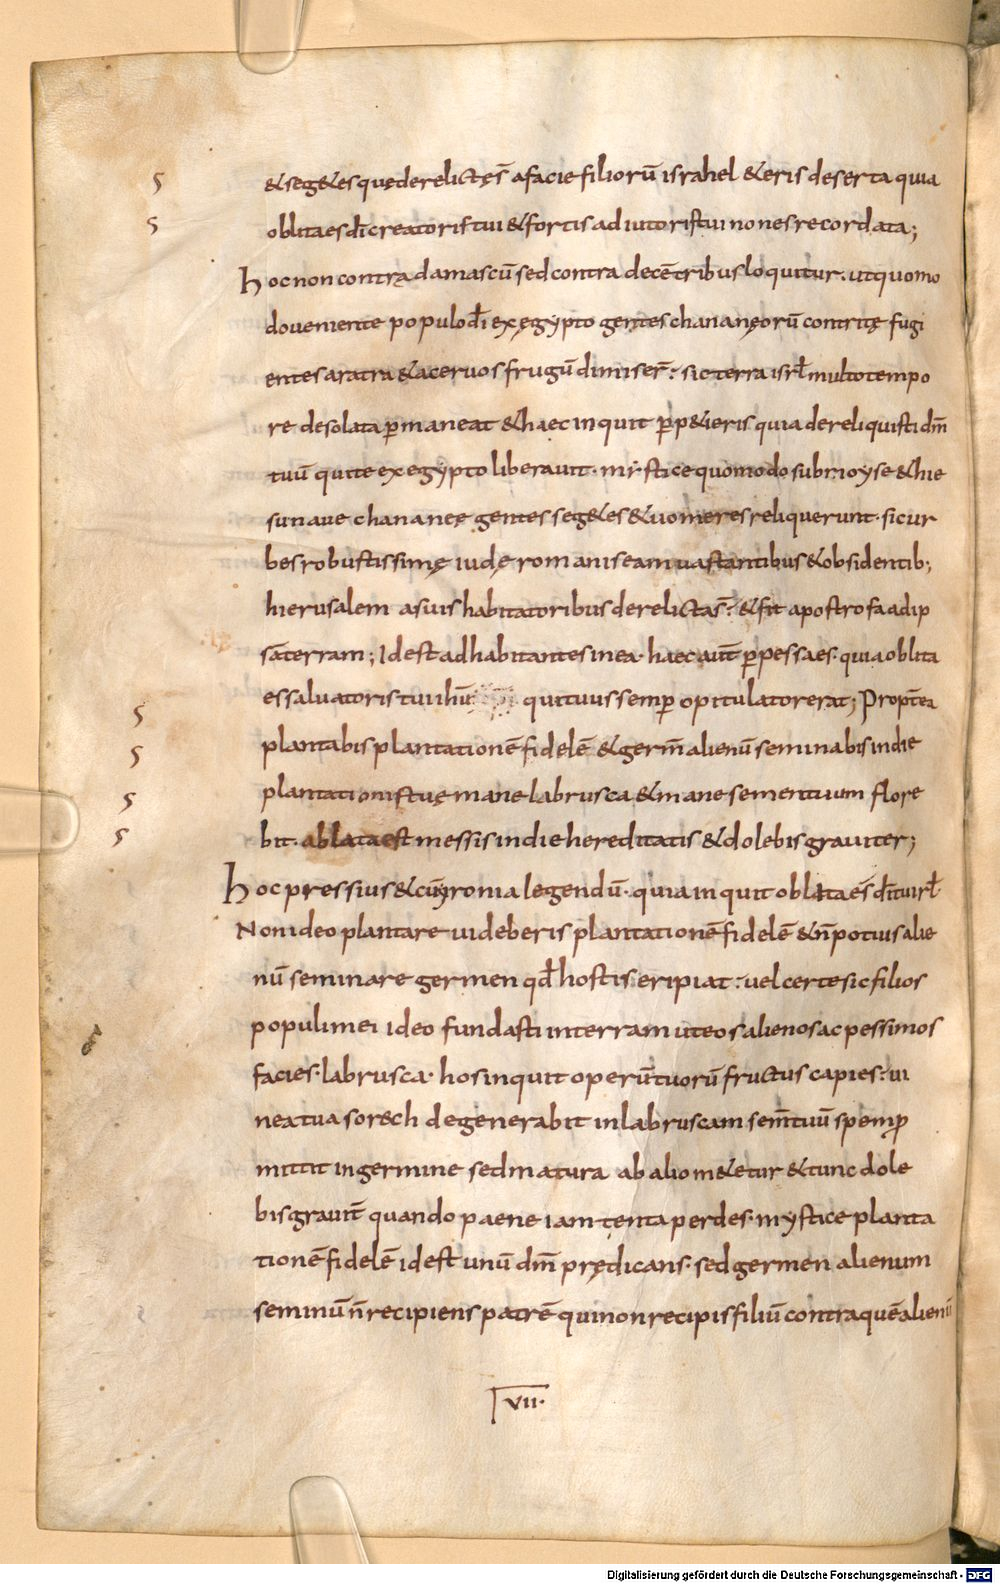 &seg&es quęderelictęs̄ afaciefiliorū israhel &eris deserta quia
oblitaes dī creatoris tui &fortis adiutoris tui non es recordata;
hoc non contra damascū sed contra decē tribus loquitur. ut quomo
do ueniente populo dī ex ęgypto gentes chananęorū contritę fugi
entes aratra & aceruos frugū dimiser̄: sic terra isrł multo tempo
re desolata ꝑmaneat & haec inquit ꝑp& ieris quia dereliquisti dm̄
tuū qui te ex egypto liberauit. mystice quomodo sub moyse & hie
su naue chananeę gentes seg&es & uomeres reliquerunt. sic ur
bes robustissimę iudę romanis eam uastantibus & obsidentib;
hierusalem a suis habitatoribus derelictas̄: & fit apostrofa ad ip
sā terram; Idest ad habitantes in ea. haec aut̄ ꝑpessa es. quia oblita
es saluatoris tui ihū qui tuus semꝑ opitulator erat; Propt̄ea
plantabis plantationē fidelē & germ̄ alienū seminabis in die
plantationis tuę mane labrusca & mane sementuum flore
bit. ablata est messis in die hereditatis & dolebis grauiter;
hoc pressius & cū yronia legendū. quia inquit oblita es̄ dī tui isrł
Non ideo plantare uideberis plantationē fidelē & n̄ potius alie
nū seminare germen qđ hostis eripiat: uel certe sic filios
populi mei ideo fundasti in terram ut eos alienos ac pessimos
facies. labrusca. hos inquit operū tuorū fructus capies: ui
nea tua sor&ch degenerabit in labruscam sem̄ tuū spem ꝑ
mittit in germine sed matura ab alio m&etur & tunc dole
bis grauit̄ quando paene iam tenta perdes. mystice planta
tionē fidelē idest unū dm̄ prędicans. sed germen alienum
seminū n̄ recipiens patrē qui non recipis filiū contra quē alienū
VII.
Digitalisierung gefördert durch die Deutsche Forschungsgemeinschaft - DFG